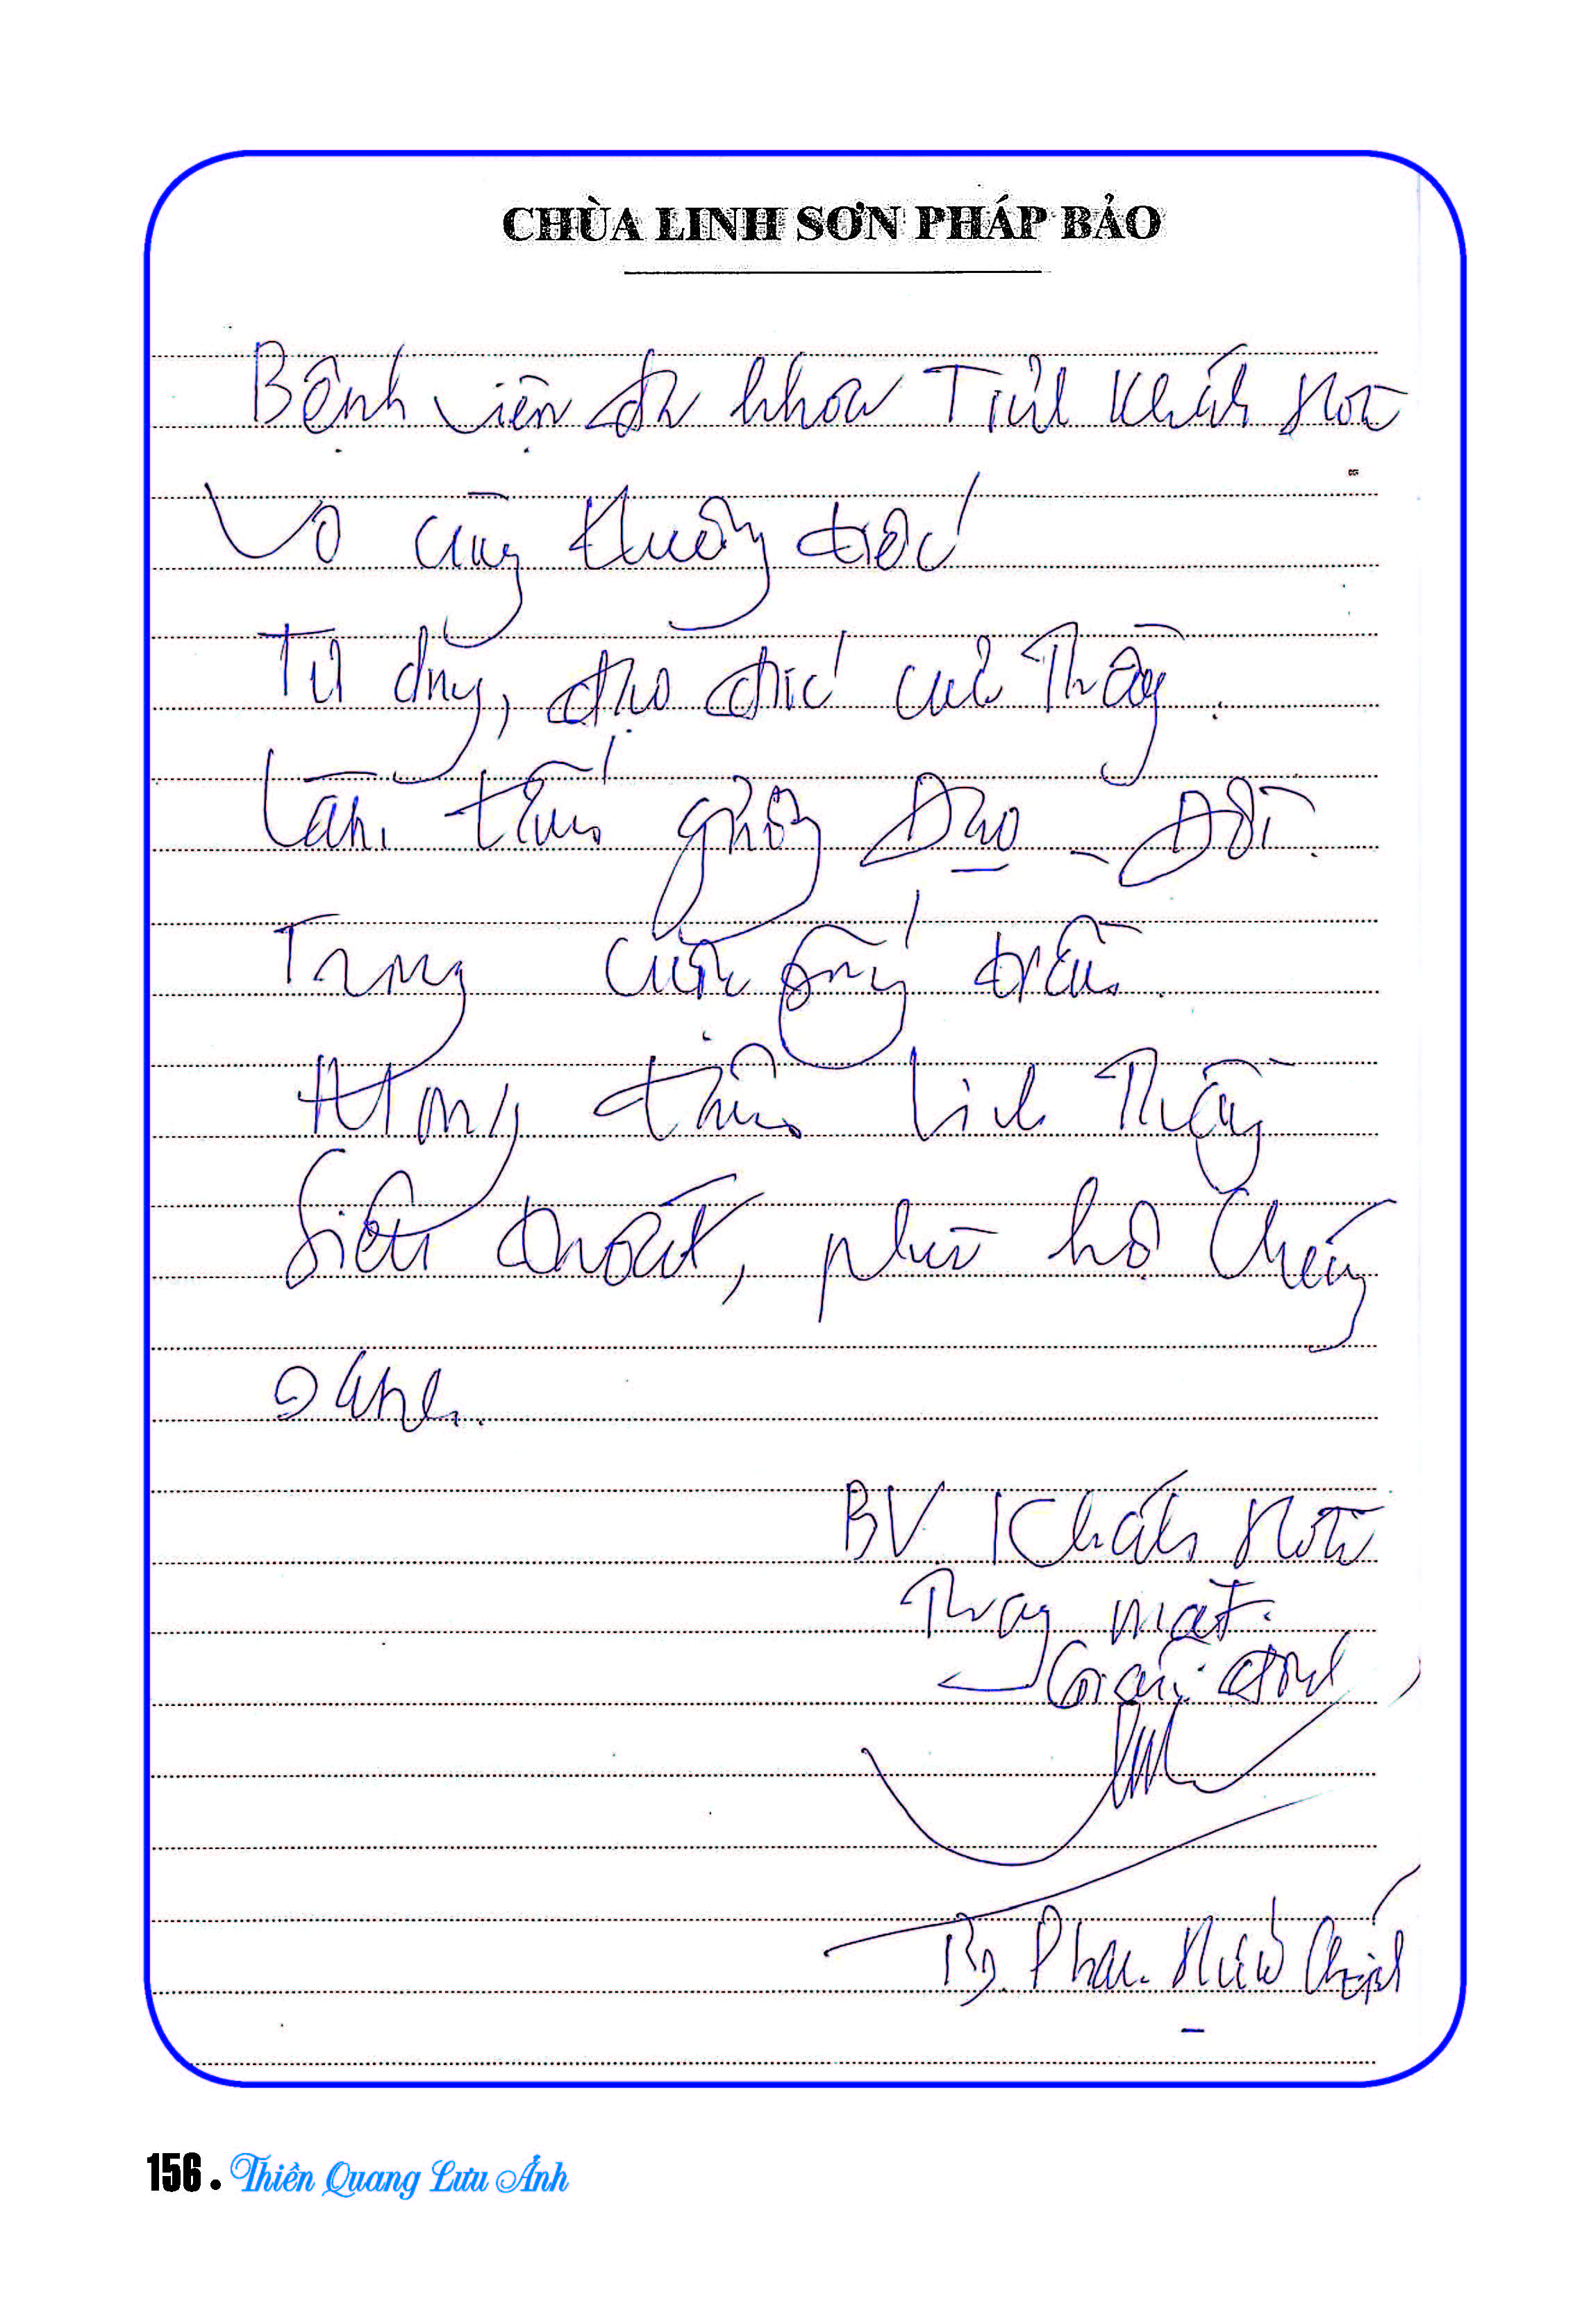 CHÙA LINH SƠN PHÁP BẢO
Bệnh viện đa khoa Tỉnh Khánh Hoà
Vô cùng thương tiếc
Tư duy, đạo đức của Thầy.
Làm thấm giọng Đạo - Đời.
Trong cuộc sống trần.
Mong thần linh Thầy
Siêu thoát, phù hộ chúng
sanh.
BV Khánh Hoà
Thay mặt.
Giám đốc
Bs. Phan Hữu Chính
156. Thiền Quang Lưu Ảnh